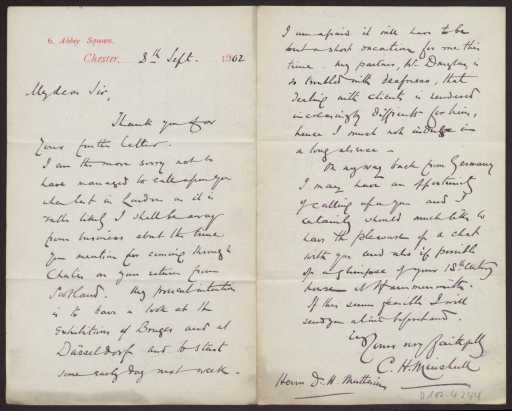 6, Abbey Square,
Chester, 8th Sept. 1902
My dear Sir,
Thank you for
your further letter.
I am the more sorry not to
have managed to call upon you
when last in London as it is
rather likely I shall be away
from business about the time
you mention for coming through
Chester on your return from
Scotland. My present intention
is to have a look at the
Exhibitions of Bruges and at
Düsseldorf and to start
some early day next week.
I am afraid it will have to be
but a short vacation for me this
time. My partner, Mr. Douglas, is
so troubled with deafness, that
dealing with clients is rendered
increasingly difficult for him,
hence I must not indulge in
a long absence —
On my way back from Germany
I may have an opportunity
of calling upon you and I
certainly should much like to
have the pleasure of a chat
with you and also if possible
of a glimpse of your 18th century
house at Hammersmith.
If this seems feasible I will
send you a line beforehand.
Yours very faithfully
C. H. Minshull
Herrn Dr. H. Muthesius